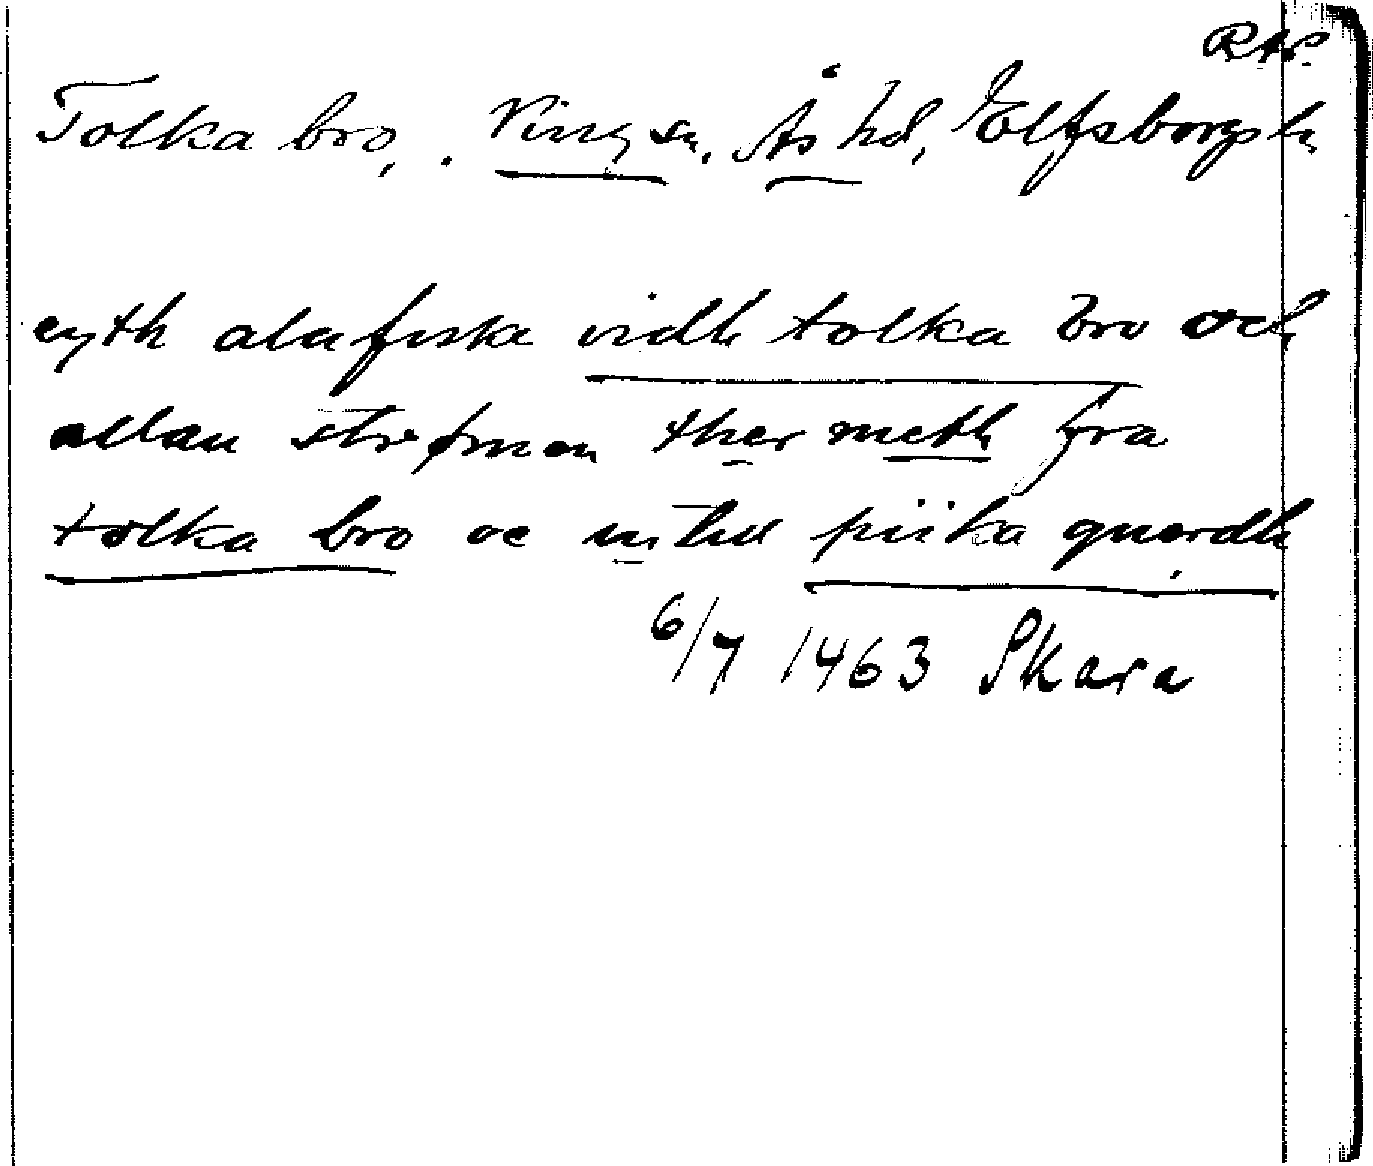 RAP.
Tolka bro, Vings sn, Ås hd, Elfsborgs ln
eyth ala fiska vidh tolka bro och
allan strømen ther meth fra
tolka bro oc in till piika querdh
6/7 1463 Skara